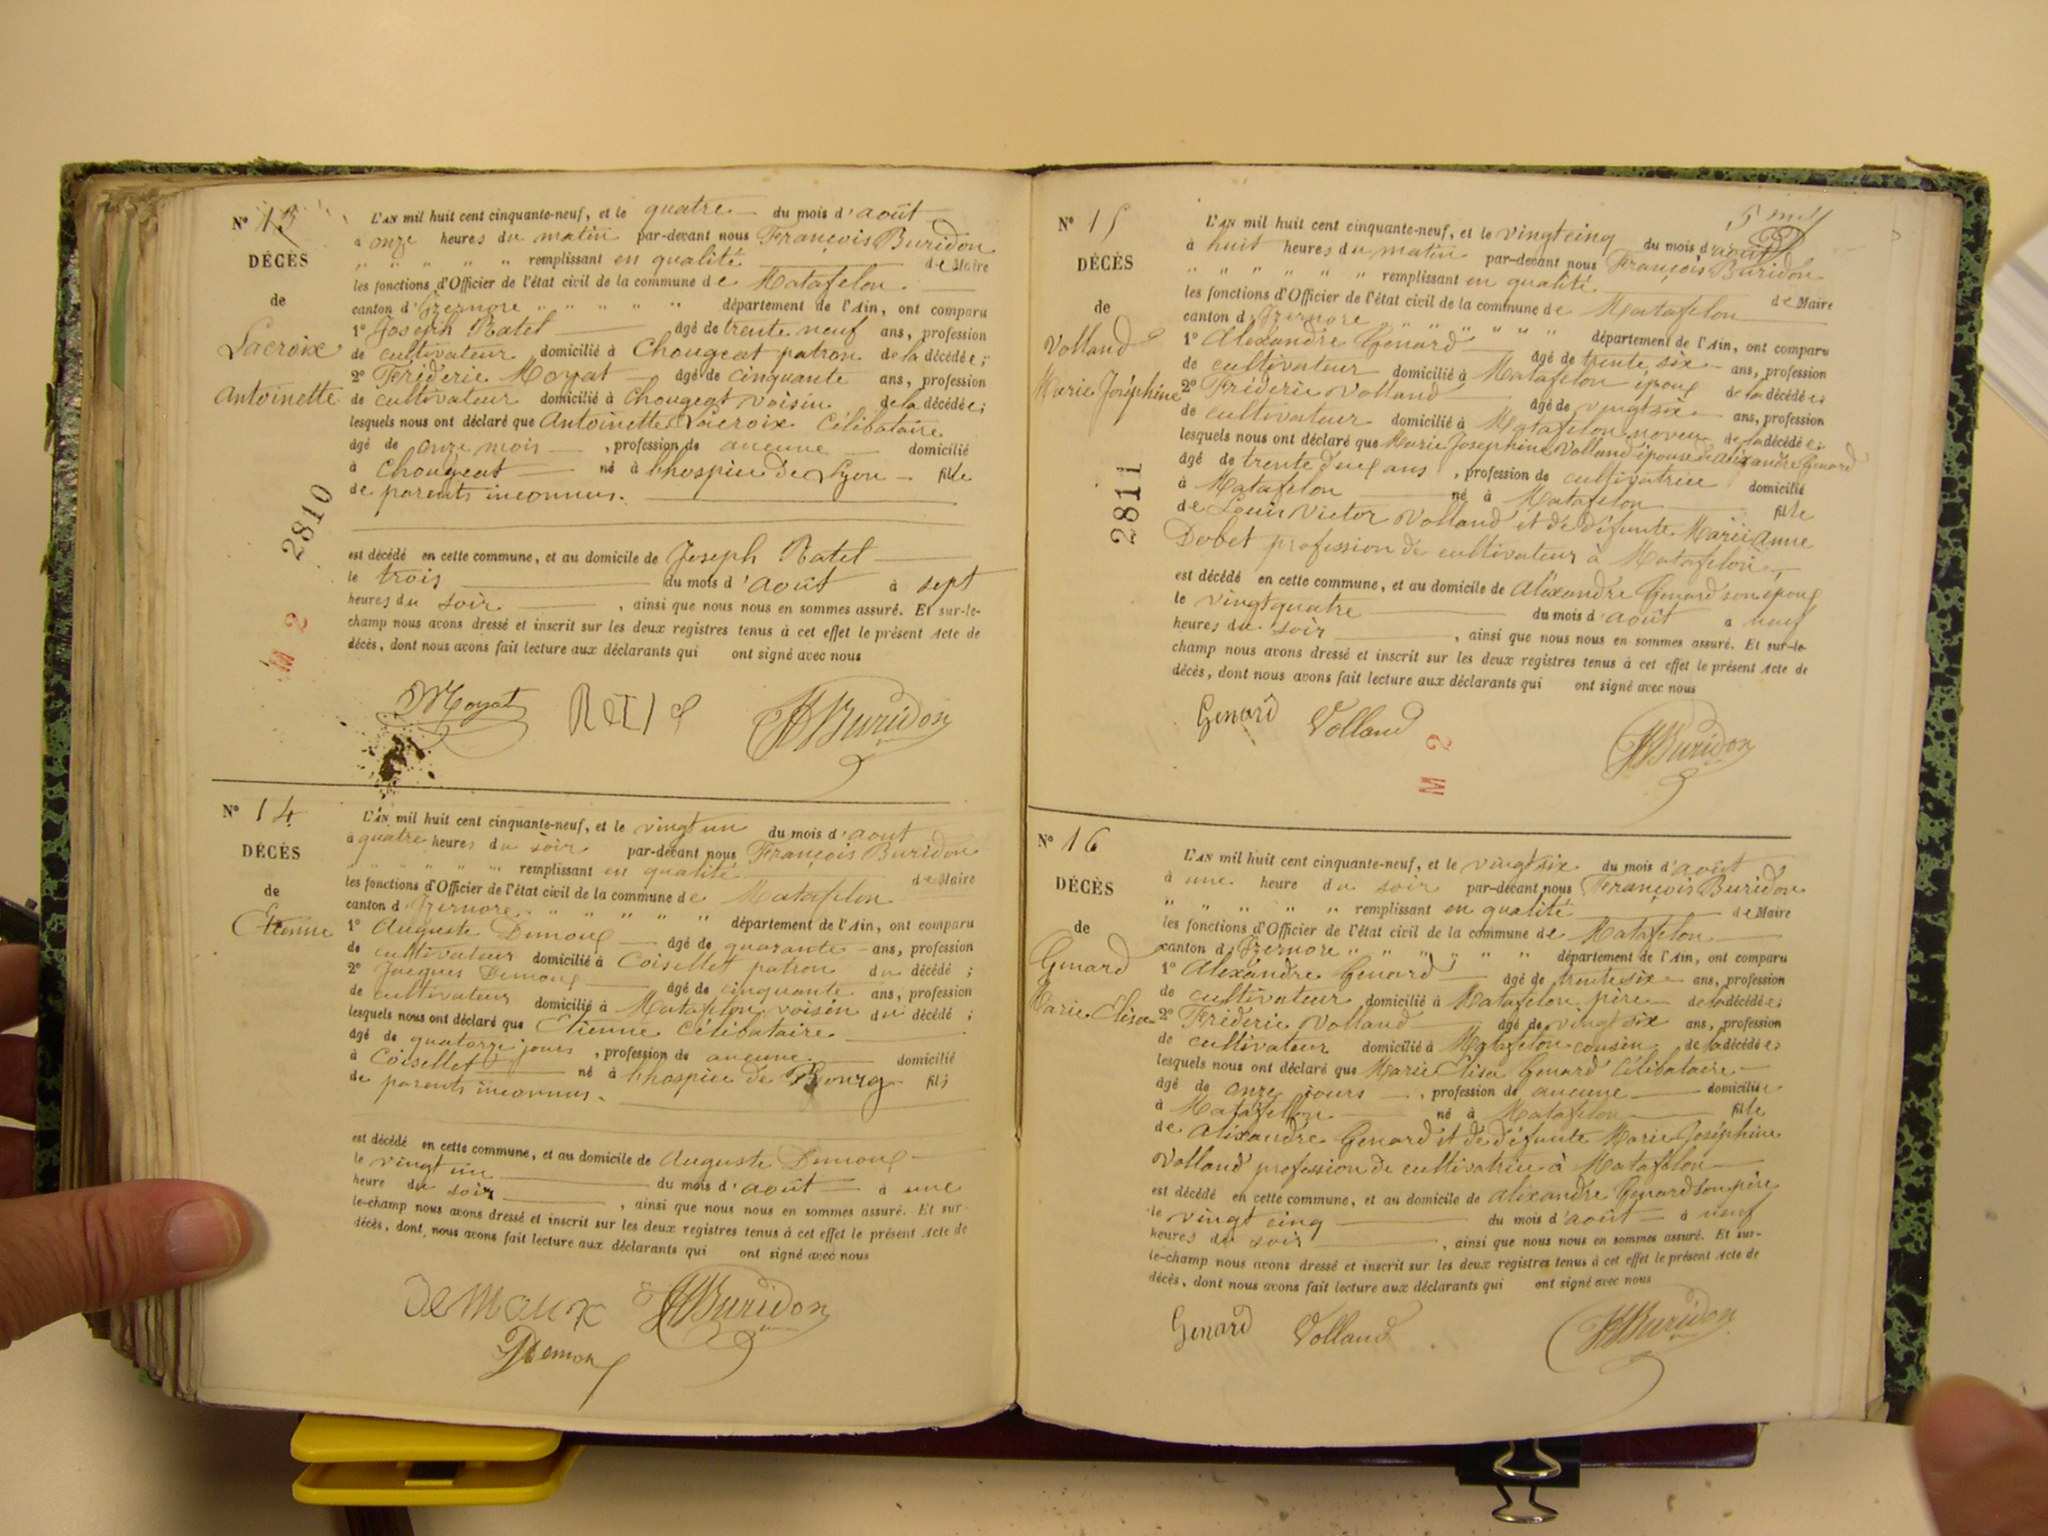 N° 13
DÉCÈS
de
Lacroix
Antoinette
L'AN mil huit cent cinquante-neuf, et le quatre du mois d'août
à onze heures du matin par-devant nous François Buridon
" " " " " remplissant en qualité de Maire
les fonctions d'Officier de l'état civil de la commune de Matafelon
canton d'Izernore " " " " " département de l'Ain, ont comparu
1° Joseph Ratel âgé de trente neuf ans, profession
de cultivateur domicilié à Chougeat patron de la décédée;
2° Fréderic Moyat âgé de cinquante ans, profession
de cultivateur domicilié à Chougeat voisin de la décédée;
lesquels nous ont déclaré que Antoinette Lacroix Célibataire
âgé de onze mois , profession de aucune domicilié
à Chougeat né à l'hospice de Lyon fille
de parents inconnus.
2810
est décédé en cette commune, et au domicile de Joseph Ratel
le trois du mois d'août à sept
heures du soir , ainsi que nous nous en sommes assuré. Et sur-le-
champ nous avons dressé et inscrit sur les deux registres tenus à cet effet le présent Acte de
décès, dont nous avons fait lecture aux déclarants qui ont signé avec nous
M 2
Moyat Ratel Buridon
N° 14
DÉCÈS
de
Etienne
L'AN mil huit cent cinquante-neuf, et le vingt un du mois d'août
à quatre heures du soir par-devant nous François Buridon
" " " " " remplissant en qualité de Maire
les fonctions d'Officier de l'état civil de la commune de Matafelon
canton d'Izernore " " " " " " département de l'Ain, ont comparu
1° Auguste Dumoux âgé de quarante ans, profession
de cultivateur domicilié à Coisellet patron du décédé;
2° Jacques Dumoux âgé de cinquante ans, profession
de cultivateur domicilié à Matafelon voisin du décédé;
lesquels nous ont déclaré que Etienne Célibataire
âgé de quatorze jours , profession de aucune domicilié
à Coisellet né à l'hospice de Bourg fils
de parents inconnus.
est décédé en cette commune, et au domicile de Auguste Dumoux
le vingt un du mois d'août à une
heure du soir , ainsi que nous nous en sommes assuré. Et sur-
le-champ nous avons dressé et inscrit sur les deux registres tenus à cet effet le présent Acte de
décès, dont nous avons fait lecture aux déclarants qui ont signé avec nous
demaux Buridon
N° 15
DÉCÈS
de
Volland
Marie Joséphine
L'AN mil huit cent cinquante-neuf, et le vingt cinq du mois d'août
à huit heures du matin par-devant nous François Buridon
" " " " " " remplissant en qualité de Maire
les fonctions d'Officier de l'état civil de la commune de Matafelon
canton d'Izernore " " " " " département de l'Ain, ont comparu
1° Alexandre Genard âgé de trente six ans, profession
de cultivateur domicilié à Matafelon époux de la décédée;
2° Fréderic Volland âgé de vingt six ans, profession
de cultivateur domicilié à Matafelon neveu de la décédée;
lesquels nous ont déclaré que Marie Josephine Volland épouse de Alixandre Genard
âgé de trente deux ans , profession de cultivatrice domicilié
à Matafelon né à Matafelon fille
de Louis Victor Volland et de défunte Marie anne
Dobet profession de cultivateur à Matafelon,
2811
est décédé en cette commune, et au domicile de Alexandre Genard son époux
le vingt quatre du mois d'août à neuf
heures du soir , ainsi que nous nous en sommes assuré. Et sur-le-
champ nous avons dressé et inscrit sur les deux registres tenus à cet effet le présent Acte de
décès, dont nous avons fait lecture aux déclarants qui ont signé avec nous
Genard Volland Buridon
M 2
N° 16
DÉCÈS
de
Genard
Marie Elisa
L'AN mil huit cent cinquante-neuf, et le vingt six du mois d'août
à une heure du soir par-devant nous François Buridon
" " " " " remplissant en qualité de Maire
les fonctions d'Officier de l'état civil de la commune de Matafelon
canton d'Izernore " " " " " " département de l'Ain, ont comparu
1° Alexandre Genard âgé de trente six ans, profession
de cultivateur domicilié à Matafelon père de la décédée;
2° Fréderic Volland âgé de vingt six ans, profession
de cultivateur domicilié à Matafelon cousin de la décédée;
lesquels nous ont déclaré que Marie Elisa Genard Célibataire
âgé de onze jours , profession de aucune domicilié
à Matafelon né à Matafelon fille
de Alixandre Genard et de défunte Marie Joséphine
Volland profession de cultivatrice à Matafelon
est décédé en cette commune, et au domicile de Alixandre Genard son père
le vingt cinq du mois d'août à neuf
heures du soir , ainsi que nous nous en sommes assuré. Et sur-
le-champ nous avons dressé et inscrit sur les deux registres tenus à cet effet le présent Acte de
décès, dont nous avons fait lecture aux déclarants qui ont signé avec nous
Genard Volland Buridon